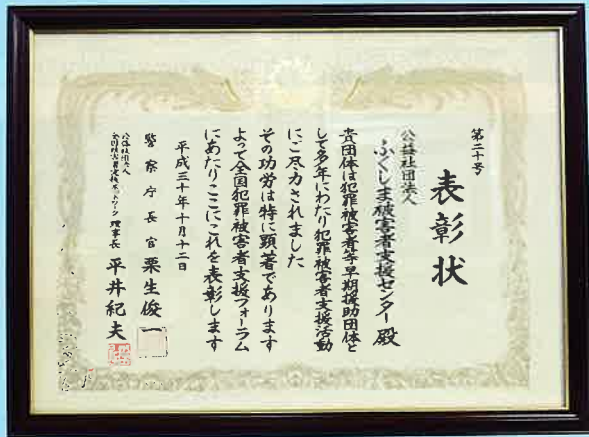 第二十号
表彰状
公益社団法人
ふくしま被害者支援センター 殿
貴団体は犯罪被害者等早期援助団体と
して多年にわたり犯罪被害者支援活動
にご尽力されました
その功労は特に顕著であります
よって全国犯罪被害者支援フォーラム
にあたりここにこれを表彰します
平成三十年十月十二日
警察庁長官 栗生俊一
公益社団法人
全国被害者支援ネットワーク 理事長 平井紀夫